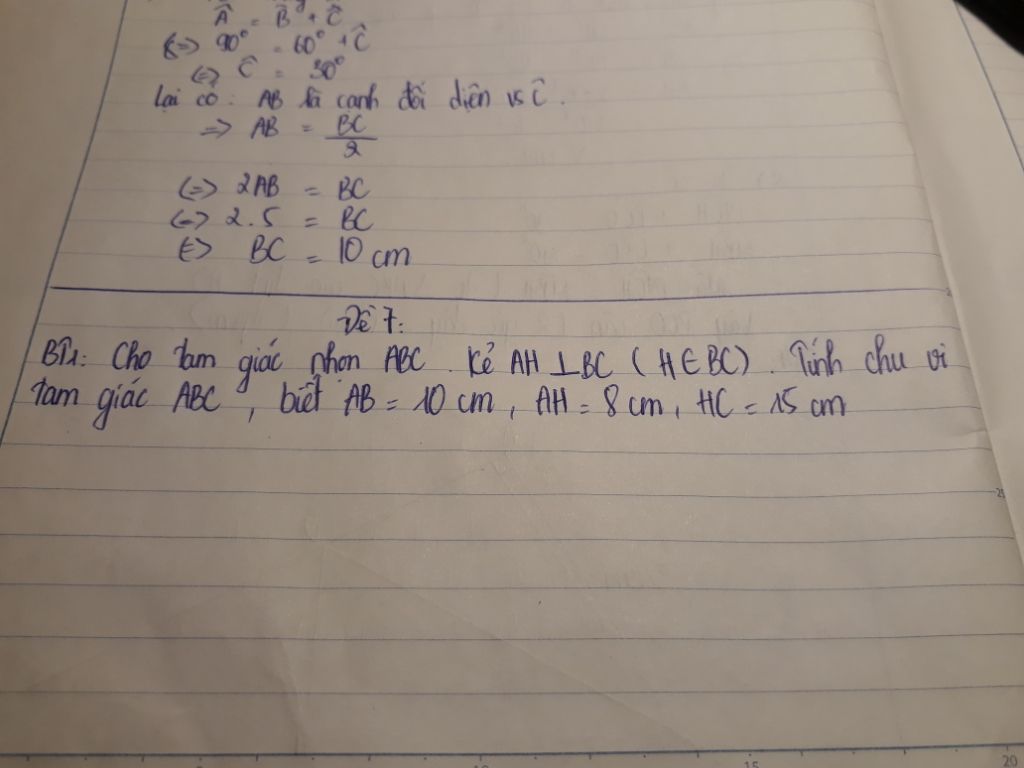 Â = B̂ + Ĉ
<=> 90° = 60° + Ĉ
<=> Ĉ = 30°
Lại có : AB là cạnh đối diện vs Ĉ .
=> AB = BC/2
<=> 2AB = BC
<=> 2.5 = BC
<=> BC = 10 cm
Đề 7:
BT1: Cho tam giác nhọn ABC . Kẻ AH ⊥ BC ( H ∈ BC) . Tính chu vi
tam giác ABC , biết AB = 10 cm , AH = 8 cm , HC = 15 cm
25
15
20